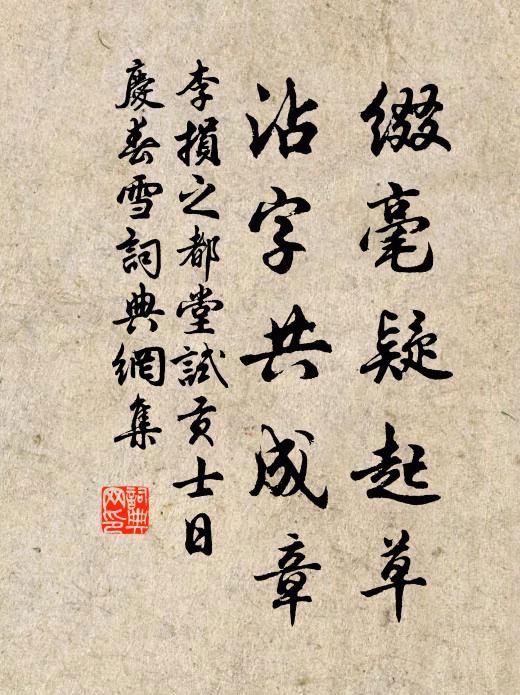 綴毫疑起草
沾字共成章
李損之都堂試貢士日
慶春雪詞典網集
詞典
网印